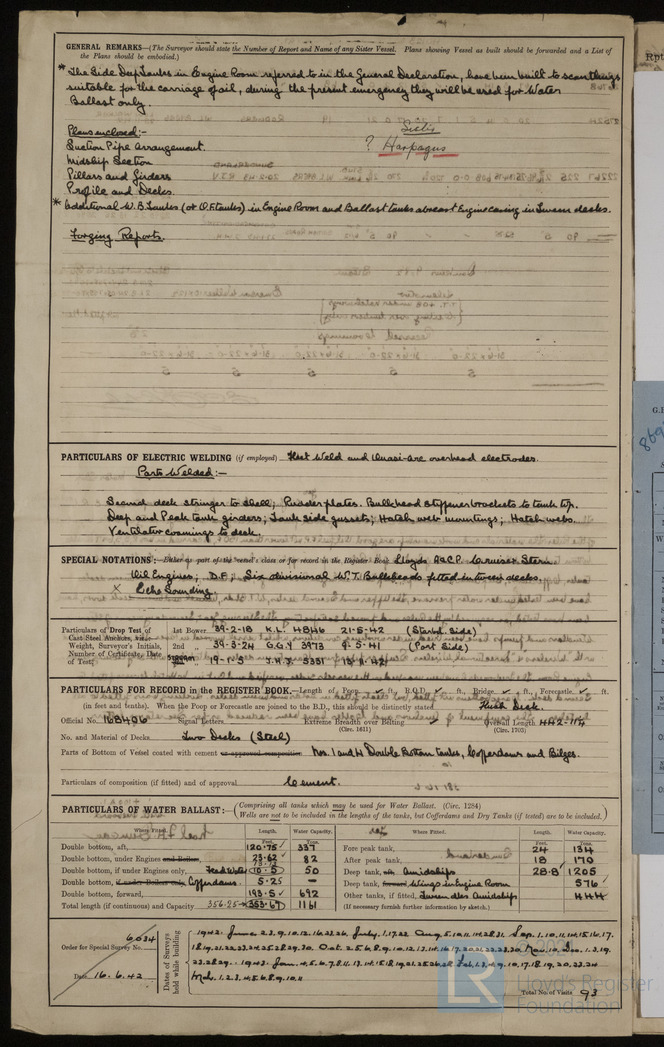 GENERAL REMARKS—(The Surveyor should state the Number of Report and Name of any Sister Vessel. Plans showing Vessel as built should be forwarded and a List of
the Plans should be embodied.)
* The Side Deep Tanks in Engine Room referred to in the General Declaration, have been built to scantlings
suitable for the carriage of oil, during the present emergency they will be used for Water
Ballast only.
Plans enclosed:-
Suction Pipe arrangement.
Midship Section
Pillars and Girders
Profile and Decks.
Sister
? Harpagus
* Additional W.B. Tanks (or O.F. tanks) in Engine Room and Ballast tanks abreast Engine casing in Tween decks.
Forging Reports.
PARTICULARS OF ELECTRIC WELDING (if employed) Fleet Weld and Quasi-Arc overhead electrodes.
Parts Welded:-
Second deck stringer to shell; Rudder plates. Bulkhead stiffener brackets to tank top.
Deep and Peak tank girders; Tank side gussets; Hatch web mountings; Hatch webs.
Ventilator coamings to deck.
SPECIAL NOTATIONS:- Either as part of the vessel's class or for record in the Register Book. Lloyds A&CP. Cruiser Stern
Oil Engines; D.F; Six divisional W.T. Bulkheads fitted in tween decks.
X Echo Sounding.
Particulars of Drop Test of
Cast Steel Anchors, viz.:—
Weight, Surveyor's Initials,
Number of Certificate, Date
of Test
1st Bower 39-2-18 K.L. 4846 21-5-42 (Starbd. Side)
2nd " 39-3-24 G.G.Y 3973 9-5-41 (Port Side)
PARTICULARS FOR RECORD in the REGISTER BOOK.—Length of Poop ✓ ft., R.Q.D. ✓ ft., Bridge ✓ ft., Forecastle ✓ ft.
(in feet and tenths). When the Poop or Forecastle are joined to the B.D., this should be distinctly stated Flush Deck.
Official No. 168406 Signal Letters Extreme Breadth over Belting ✓ Overall Length 442-11¼
(Circ. 1611) (Circ. 1703)
No. and Material of Decks Two Decks (Steel)
Parts of Bottom of Vessel coated with cement or approved composition Nos. 1 and 4 Double Bottom tanks, Cofferdams and Bilges.
Particulars of composition (if fitted) and of approval Cement.
PARTICULARS OF WATER BALLAST:— (Comprising all tanks which may be used for Water Ballast. (Circ. 1284)
Wells are not to be included in the lengths of the tanks, but Cofferdams and Dry Tanks (if tested) are to be included.)
Where Fitted. Length. Water Capacity. Where Fitted. Length. Water Capacity.
Feet. Tons. Feet. Tons.
Double bottom, aft, 120.75 ✓ 337
Double bottom, under Engines and Boiler, 23.62 82
Double bottom, if under Engines only, Feed Water 10.5 50
Double bottom, if under Boiler only, Cofferdams. 5.25 —
Double bottom, forward, 193.5 ✓ 692
Total length (if continuous) and Capacity 356.25 353.67 1161
Fore peak tank, 24 134
After peak tank, 18 170
Deep tank, aft, Amidships 28.8 ✓ 1205
Deep tank, forward, Wings in Engine Room 576 ✓
Other tanks, if fitted, Tween dks Amidships 444
(If necessary furnish further information by sketch.)
Order for Special Survey No. 6034
Date 16.6.42
Dates of Surveys held while building
Total No. of Visits 93
LR
Lloyd's Register
Foundation